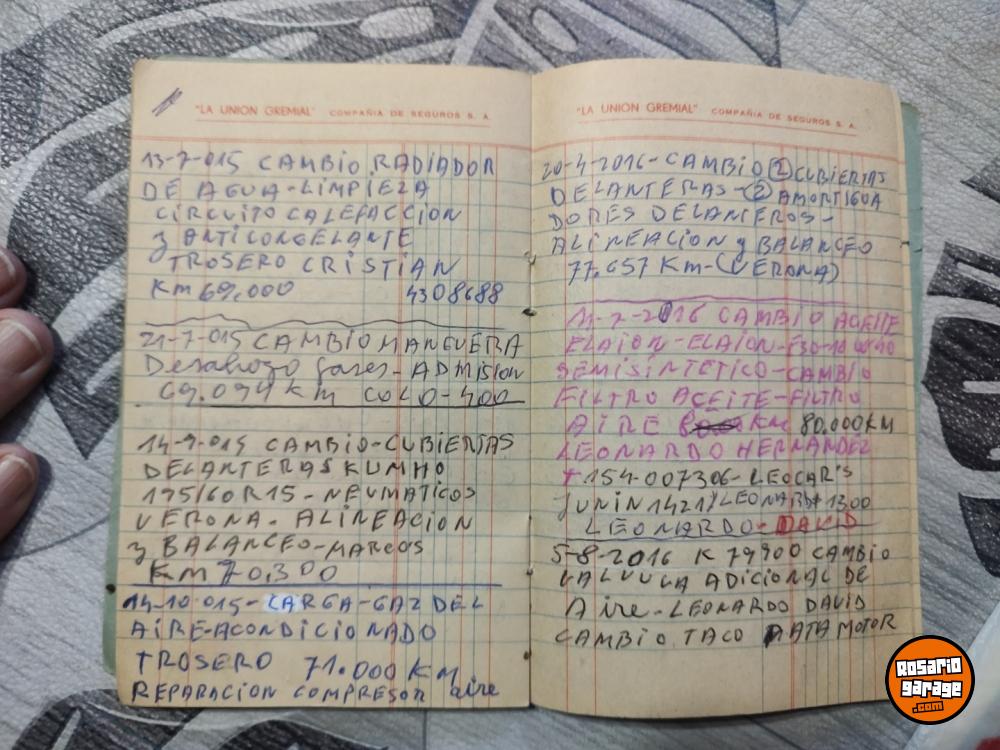 "LA UNION GREMIAL" COMPAÑIA DE SEGUROS S. A.
13-7-015 CAMBIO RADIADOR
DE AGUA-LIMPIEZA
CIRCUITO CALEFACCION
y ANTICONGELANTE
TROSERO CRISTIAN
KM 69.000 4308688
21-7-015 CAMBIO MANGUERA
Desahogo gases-ADMISION
69.094 Km COLO-400
14-9-015 CAMBIO-CUBIERTAS
DELANTERAS KUMHO
195/60R15-NEUMATICOS
VERONA. ALINEACION
y BALANCEO-MARCOS
KM 70.300
14-10-015-CARGA-GAZ DEL
AIRE-ACONDICIONADO
TROSERO 71.000 KM
REPARACION COMPRESOR aire
"LA UNION GREMIAL" COMPAÑIA DE SEGUROS S. A.
20-4-2016-CAMBIO 2 CUBIERTAS
DELANTERAS-2 AMORTIGUA
DORES DELANTEROS-
ALINEACION y BALANCEO
77.657 Km-(VERONA)
11-7-2016 CAMBIO ACEITE
ELAION-ELAION-F30-10W-40
SEMISINTETICO-CAMBIO
FILTRO ACEITE-FILTRO
AIRE KM 80.000KM
LEONARDO HERNANDEZ
T 154-007306-LEOCAR'S
JUNIN 1421) LEONARDO 1300
LEONARDO-DAVID
5-8-2016 K 79900 CAMBIO
VALVULA ADICIONAL DE
Aire-LEONARDO DAVID
CAMBIO TACO PATA MOTOR
Rosario
garage
.com